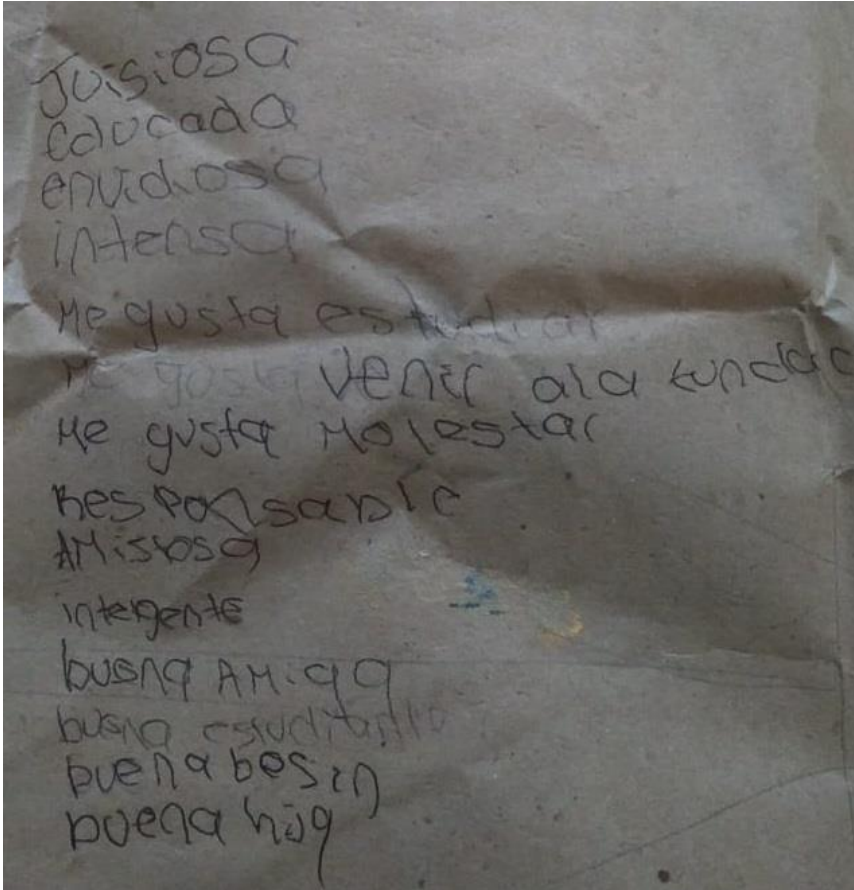 Juisiosa
Educada
envidiosa
intensa
Me gusta estudiar
Me gusta venir ala fundac
Me gusta Molestar
Responsable
AMistosa
intergente
buena AMiga
buena estuditante
buena besin
buena hija